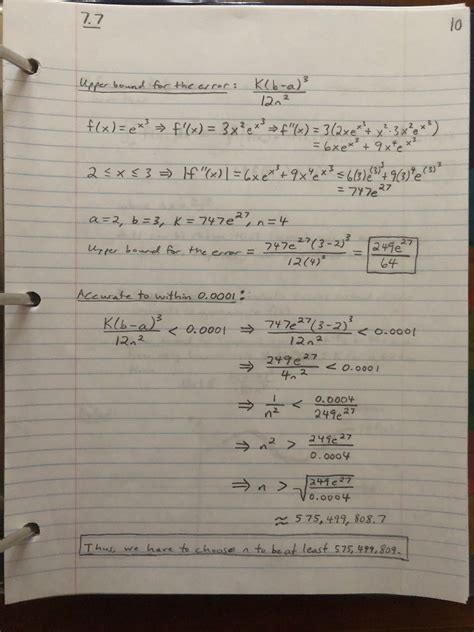 7.7
10
Upper bound for the error: K(b-a)³/12n²
f(x)=e^x³ ⇒ f'(x) = 3x²e^x³ ⇒ f''(x) = 3(2xe^x³ + x²·3x²e^x³)
= 6xe^x³ + 9x⁴e^x³
2 ≤ x ≤ 3 ⇒ |f''(x)| = 6xe^x³ + 9x⁴e^x³ ≤ 6(3)e^(3)³ + 9(3)⁴e^(3)³
= 747e²⁷
a=2, b=3, K = 747e²⁷, n=4
Upper bound for the error = 747e²⁷(3-2)³/12(4)² = 249e²⁷/64
Accurate to within 0.0001:
K(b-a)³/12n² < 0.0001 ⇒ 747e²⁷(3-2)³/12n² < 0.0001
⇒ 249e²⁷/4n² < 0.0001
⇒ 1/n² < 0.0004/249e²⁷
⇒ n² > 249e²⁷/0.0004
⇒ n > √(249e²⁷/0.0004)
≈ 575,499,808.7
Thus, we have to choose n to be at least 575,499,809.